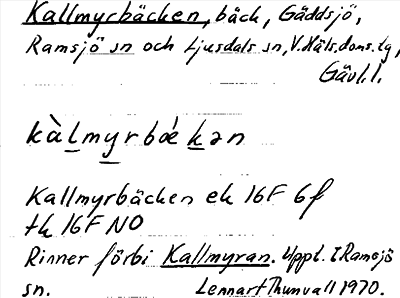 Kallmyrbäcken, bäck, Gäddsjö,
Ramsjö sn och Ljusdals sn, V. Häls. doms. lg,
Gävl. l.
kàlmyrbækən
Kallmyrbäcken ek 16F 6f
tk 16F NO
Rinner förbi Kallmyran. Uppl. i Ramsjö
sn. Lennart Thunvall 1970.